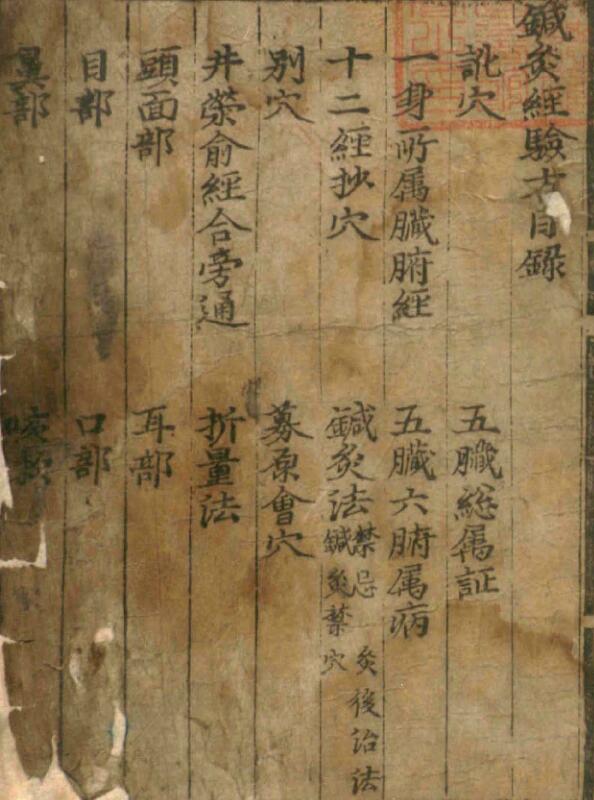 鍼灸經驗方目錄
訛穴 五臟総属証
一身所属臟腑經 五臟六腑属病
十二經抄穴 鍼灸法 禁忌 灸後治法 鍼灸禁穴
別穴 募原會穴
井滎俞經合旁通 折量法
頭面部 耳部
目部 口部
鼻部 咳嗽